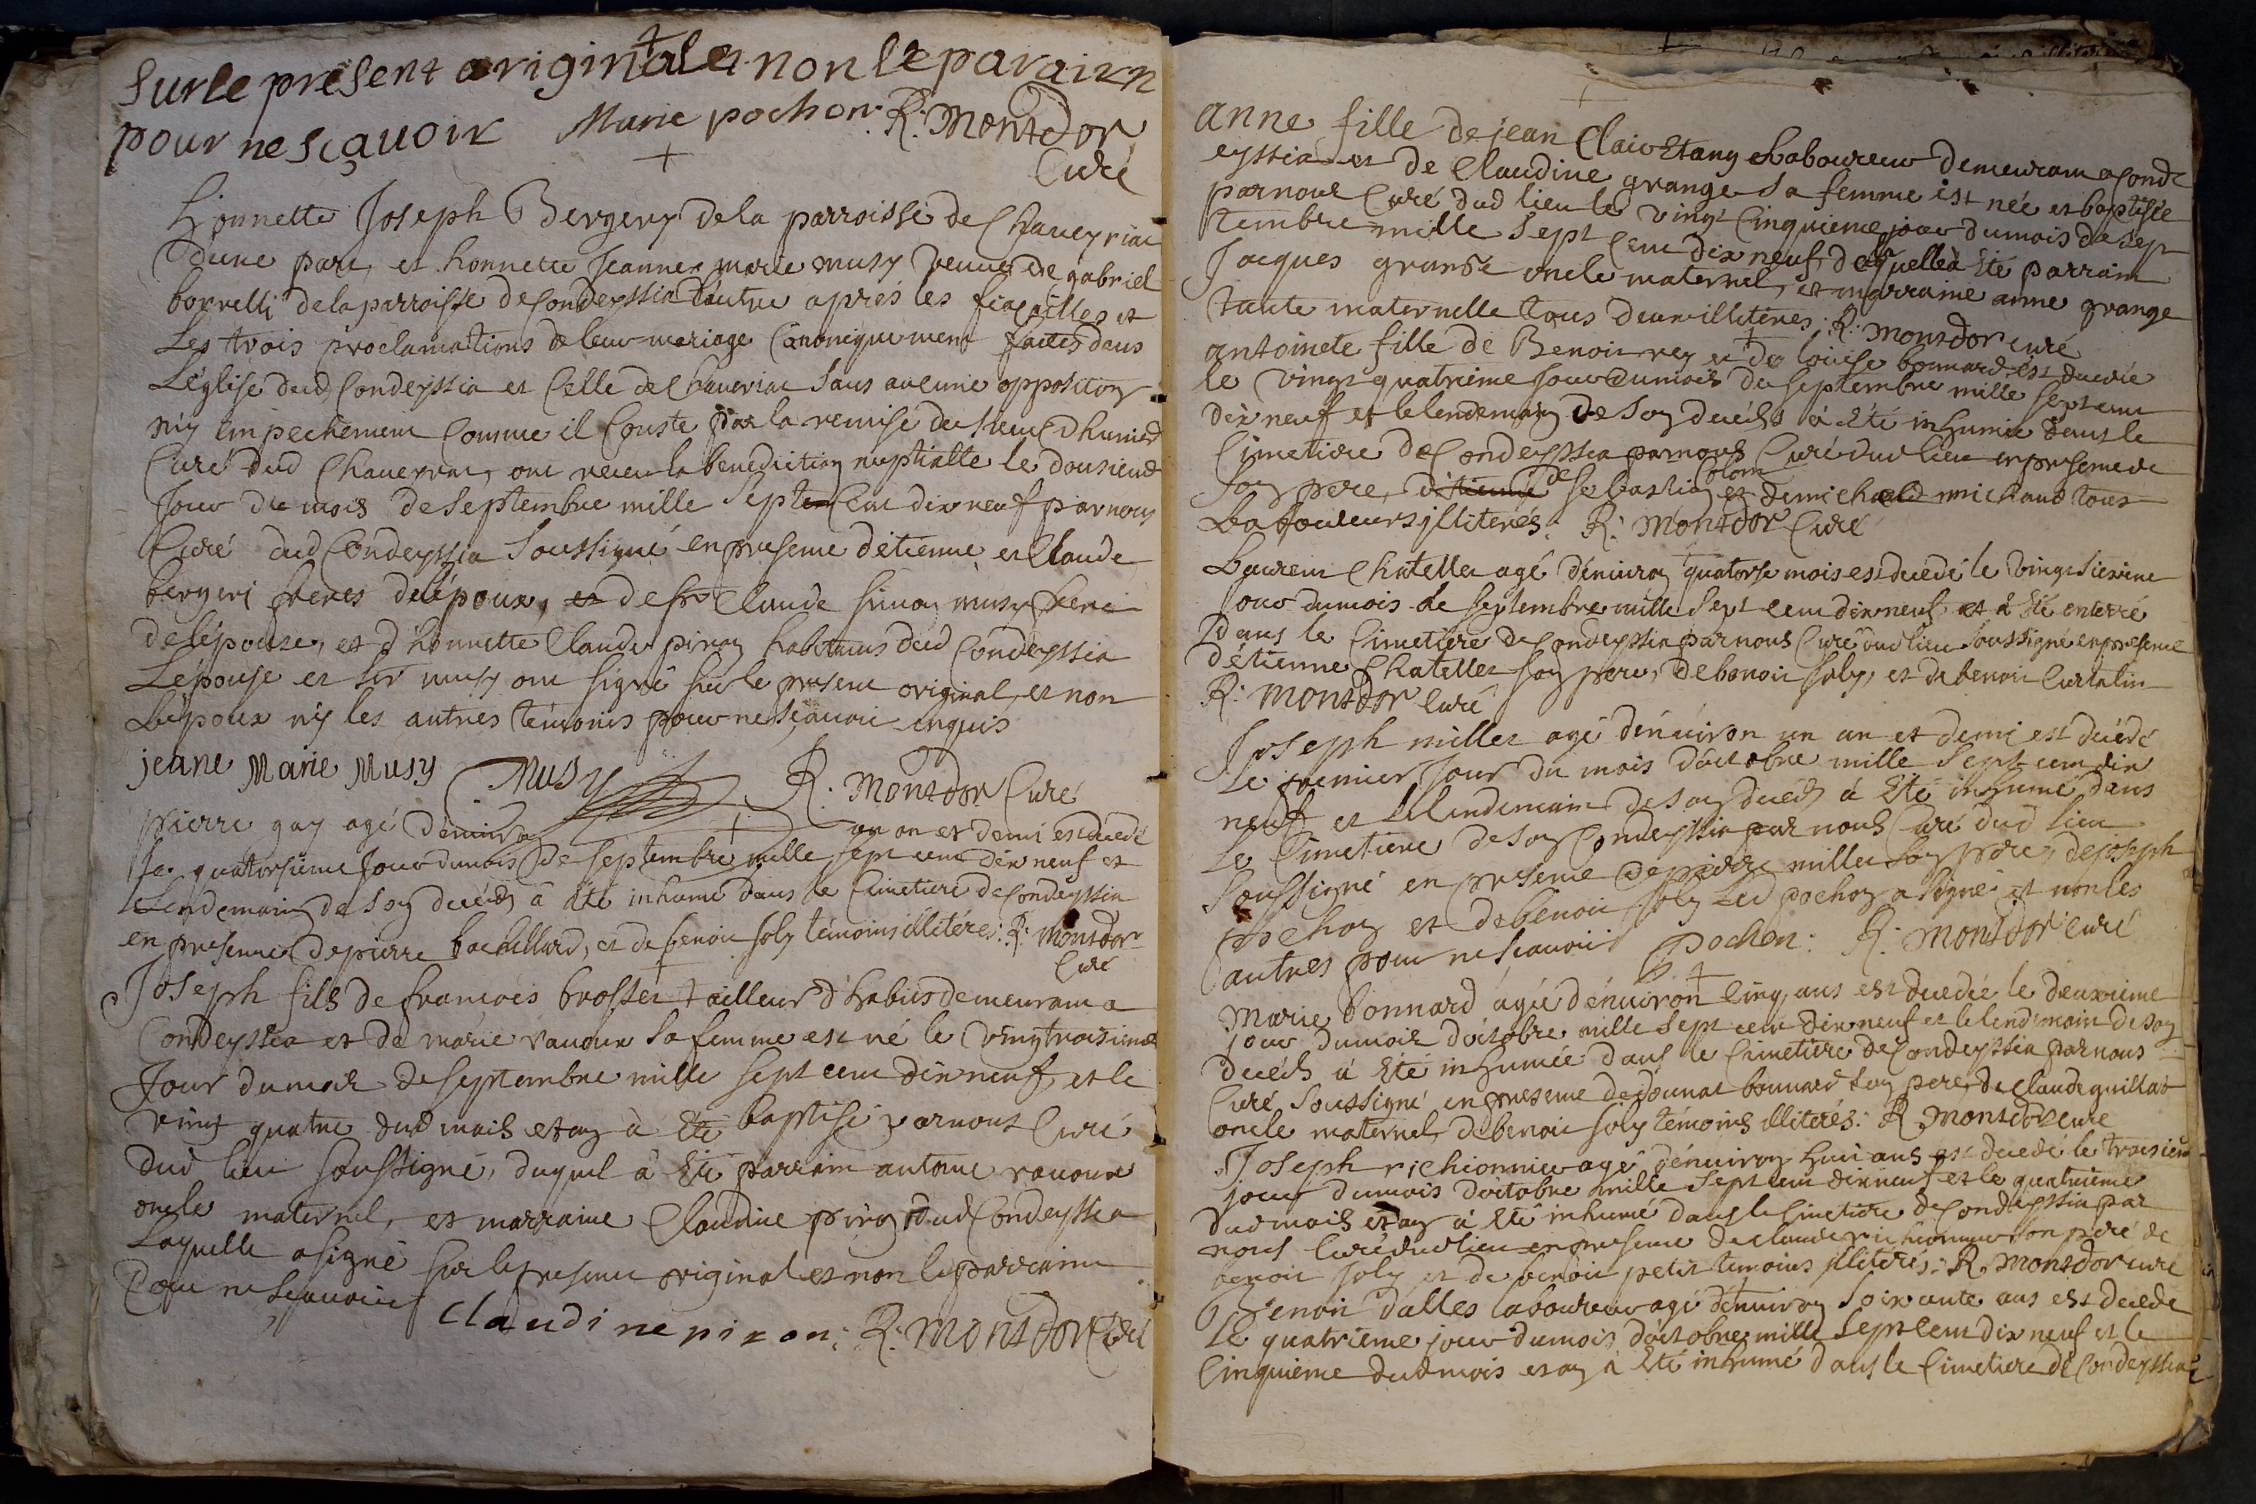 sur le present original et non le parairn
pour ne sçavoir Marie pochon R: Montdor
Curé
honnette Joseph Bergery de la parroisse de Chaveyriac
d'une part, et honnette Jeanne marie musy veuve de gabriel
borrelli de la parroisse de Condeyssia d'autre après les fiacailles et
les trois proclamations de leur mariage Canoniquement faites dans
L'église dud Condeyssia et Celle de Chaveriac sans aucune opposition
n'y empechement Comme il Conste par la remise du sieur
Curé dud Chaveyriac, ont receu la benediction nuptialle le dousieme
Jour du mois de septembre mille sept Cent dix neuf par nous
Curé dud Condeyssia soussigné en presence d'etienne et Claude
bergeri freres de l'époux, et de sr Claude simon musy frere
de l'épouse, et d'honnette Claude piron habitants dud Condeyssia
L'épouse et sr musy ont signé sur le present original, et non
L'époux n'y les autres témoins pour ne sçavoir enquis
jeane Marie Musy Musy R: Montdor Curé
pierre gay agé d'environ un an et demi est décédé
le quatorsieme Jour du mois de septembre mille sept cent dix neuf et
Lendemain de son decéds à été inhumé dans le Cimetiere de Condeyssia
en presence de pierre bachillard, et de benoit soly témoins illitéres: R: Montdor
Curé
Joseph fils de francois brosset tailleur d'habits demeurant a
Condeyssia et de marie vavoux sa femme est né le vingtroisieme
Jour du mois de septembre mille sept cent dix neuf, et le
vint quatre dud mois et an à été baptisé par nous Curé
dud lieu soussigné, duquel à été parrain antoine vavoux
oncle maternel, et marraine Claudine piron dud Condeyssia
Laquelle a signé sur le present original et non le parraine
pour ne sçavoir claudine piron: R: Montdor Curé
anne fille de jean Clair Etang Laboureur demeurant a Cond
eyssia et de Claudine grange sa femme est née et baptisée
par nous Curé dud lieu le vingt Cinquieme jour du mois de sept
tembre mille sept cent dix neuf, de laquelle à été parrain
Jacques grange oncle maternel, et marraine anne grange
tante maternelle tous deux illitéres; R: Montdor curé
antoinete fille de Benoit rey et de loüise bonnard est decedée
le vingt quatrieme Jour du mois de septembre mille sept cent
dix neuf et le lendemain de son decéds à été inhumée dans le
Cimetiere de Condeyssia par nous Curé dud lieu en presence de
son pere, d'etienne de sebastien et de michel michaud tous
Laboureurs illiterés. R: Montdor Curé
Laurent Chatellet agé d'environ quatorse mois est decedé le vingt sixieme
jour du mois de septembre mille sept cent dix neuf et à été enterré
dans le Cimetiere de Condeyssia par nous Curé dud lieu soussigné en presence
d'étienne Chatellet son pere, de benoit soly, et de benoit Curtalin
R: Montdor Curé
Joseph millet agé d'environ un an et demi est décédé
le premier Jour du mois d'octobre mille sept cent dix
neuf et lelendemain de son decéds à été inhumé dans
le Cimetiere de son Condeyssia par nous Curé dud lieu
soussigné en presence de pierre millet son pere, de joseph
pochon et de benoit soly led pochon a signé et non les
autres pour ne sçavoir pochon: R: Montdor curé
Marie bonnard agée d'environ Cinq ans est decedée le deuxieme
jour du mois d'octobre mille sept cent dix neuf et le lendemain de son
decéds à été inhumée dans le Cimetiere de Condeyssia par nous
Curé soussigné en presence de donnat bonnard son pere, de Claude guillat
oncle maternel, de benoit soly témoins illiterés: R Montdor curé
Joseph richionnier agé d'environ huit ans est decedé le troisieme
jour du mois d'octobre mille sept cent dix neuf et le quatrieme
dud mois et an à été inhumé dans le Cimetiere de Condeyssia par
nous Curé dud lieu en presence de claude richionnier son pere de
benoit soly et de benoit petit temoins illiterés: R. Montdor curé
Benoit d'alles laboureur agé d'environ soixante ans est decedé
le quatrieme jour du mois d'octobre mille sept cent dix neuf et le
Cinquieme dud mois et an à été inhumé dans le Cimetiere de Condeyssia